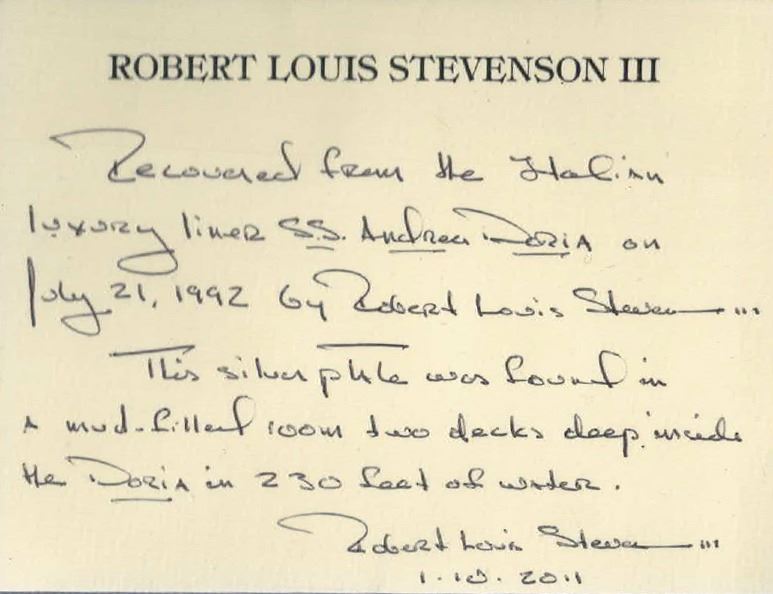 ROBERT LOUIS STEVENSON III
Recovered from the Italian
luxury liner S.S. Andrea Doria on
July 21, 1992 by Robert Louis Stevenson III
This silver plate was found in
a mud-filled room two decks deep inside
the Doria in 230 feet of water.
Robert Louis Stevenson III
1.10.2011